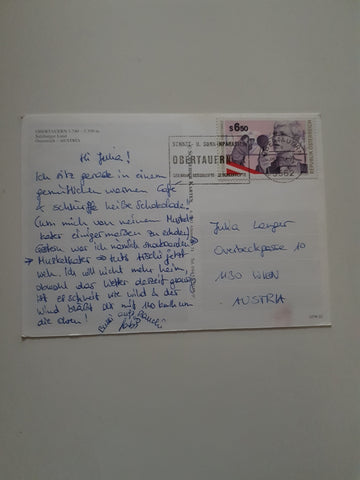 OBERTAUERN 1.740 - 2.350 m
Salzburger Land
Österreich - AUSTRIA
Hi Julia!
Ich sitz gerade in einem
gemütlichen warmen Café
& schlürfe heiße Schokolade!
(um mich von meinem Muskel
kater einigermaßen zu
Gestern war ich nämlich snowboarden
→ Muskelkater → tuts tschi jetzt
weh. Ich will nicht mehr heim,
obwohl das Wetter derzeit
ist er schneit wie wild & der
Wind bläst mit 140 km/h um
die Ohren!
Bussi aufs Bauchi
S 6,50
REPUBLIK ÖSTERREICH
OBERTAUERN
5562
Julia Langer
Overbeckgasse 10
1130 WIEN
AUSTRIA